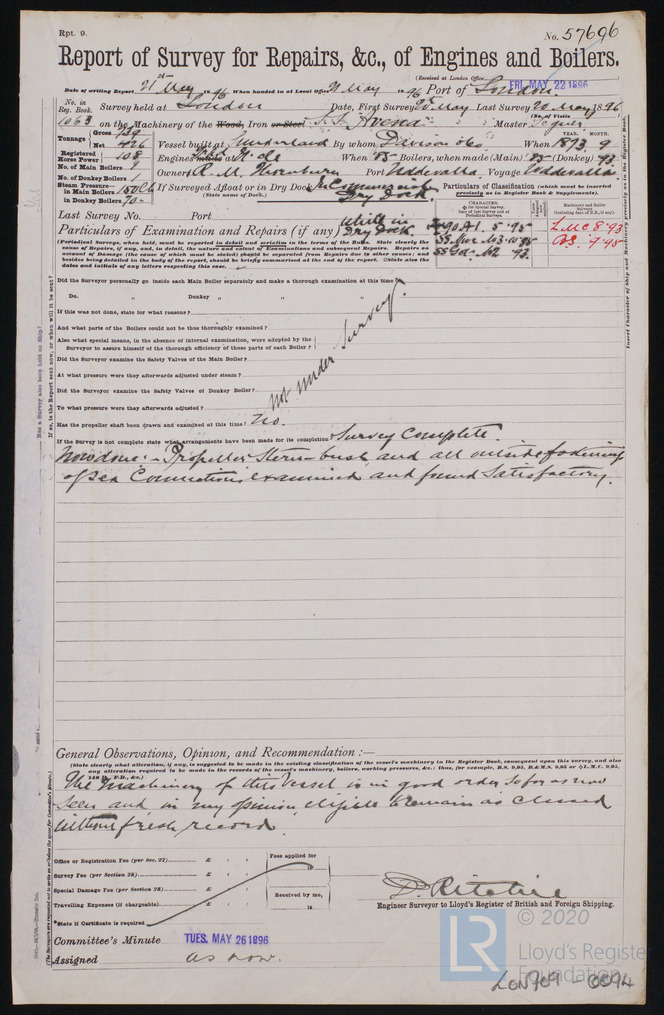 Rpt. 9.
No. 57696
Report of Survey for Repairs, &c., of Engines and Boilers.
(Received at London Office
FRI. MAY 22 1896
Date of writing Report 21st May 1896 When handed in at Local Office 21 May 1896 Port of London.
No. in Reg. Book.
Survey held at London Date, First Survey 20 May Last Survey 20 May 1896
(No. of Visits
1063 on the Machinery of the Wood, Iron or Steel S.S. Avena Master
Tonnage Gross 739 Net 426
Vessel built at Sunderland By whom Davison & Co When 1873. 9
YEAR. MONTH.
Registered Horse Power 108
Engines made at When 85 Boilers, when made (Main) 85 (Donkey) 93
No. of Main Boilers 1
Owners R. M. Thorburn Port Uddevalla Voyage Uddevalla
No. of Donkey Boilers 1
Steam Pressure in Main Boilers 150 lb in Donkey Boilers 70
If Surveyed Afloat or in Dry Dock In Commercial Dry Dock.
(State name of Dock.)
Particulars of Classification (which must be inserted precisely as in Register Book & Supplements).
Last Survey No. Port
Particulars of Examination and Repairs (if any) While in Dry Dock.
90A1 5.95
LMC 8.93
B.S. 9.95
(Periodical Surveys, when held, must be reported in detail and seriatim in the terms of the Rules. State clearly the
cause of Repairs, if any, and, in detail, the nature and extent of Examinations and subsequent Repairs. Repairs on
account of Damage (the cause of which must be stated) should be separated from Repairs due to other causes; and
besides being detailed in the body of the report, should be briefly summarised at the end of the report. State also the
dates and initials of any letters respecting this case.
Did the Surveyor personally go inside each Main Boiler separately and make a thorough examination at this time?
Do. " Donkey " " "
If this was not done, state for what reasons?
And what parts of the Boilers could not be thus thoroughly examined?
Also what special means, in the absence of internal examination, were adopted by the
Surveyor to assure himself of the thorough efficiency of those parts of each Boiler?
Did the Surveyor examine the Safety Valves of the Main Boiler?
At what pressure were they afterwards adjusted under steam?
Did the Surveyor examine the Safety Valves of Donkey Boiler?
To what pressure were they afterwards adjusted?
Not under Survey.
Has the propeller shaft been drawn and examined at this time? No.
If the Survey is not complete state what arrangements have been made for its completion Survey Complete.
Now done:- Propeller Stern-bush and all outside fastenings
of Sea Connections examined and found Satisfactory.
General Observations, Opinion, and Recommendation :—
(State clearly what alteration, if any, is suggested to be made in the existing classification of the vessel's machinery in the Register Book, consequent upon this survey, and also
any alteration required to be made in the records of the vessel's machinery, boilers, working pressures, &c.: thus, for example, B.S. 9,95, B.&M.S. 9,95 or L.M.C. 9,95,
140 lb., F.D., &c.)
The Machinery of this Vessel is in good order so far as now
seen and in my opinion eligible to remain as classed
without fresh record.
Office or Registration Fee (per Sec. 27) £
Survey Fee (per Section 28) £
Special Damage Fee (per Section 28) £
Travelling Expenses (if chargeable) £
Fees applied for
Received by me,
18
*State if Certificate is required
D. Ritchie
Engineer Surveyor to Lloyd's Register of British and Foreign Shipping.
Committee's Minute TUES. MAY 26 1896
Assigned as now.
LR
© 2020
Lloyd's Register
Foundation
LON709-0094